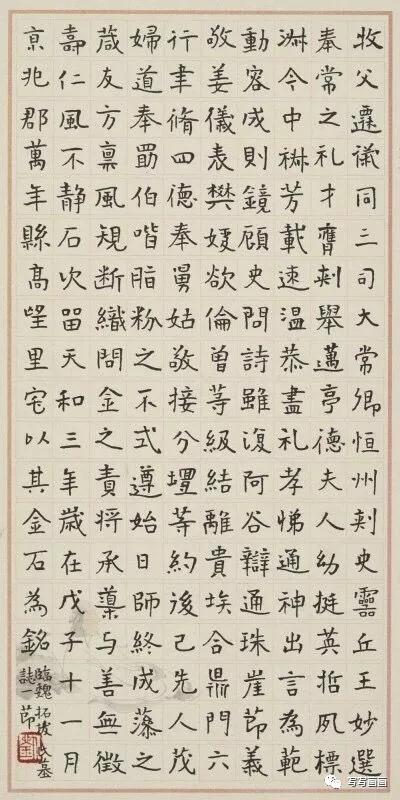 牧父遷儀同三司大常卿恒州刺史靈丘王妙選
奉常之礼才膺刺舉邁亭德夫人幼挺英哲夙標
淋令中淋芳載速温恭盡礼孝悌通神出言為範
動容成則鏡顧史問詩雖復阿谷辯通珠崖節義
敬姜儀表樊嫕欲倫曾等級結離貴埃合鼎門六
行聿脩四德奉舅姑敬接分壃等約後己先人茂
婦道奉罰伯喈脂粉之不式遵始日師終成藻之
歲友方稟風規断織問金之責将承蕖与善無徴
壽仁風不静石火留天和三年歲在戊子十一月
京兆郡萬年縣高望里宅以其金石為銘
臨魏拓拔氏墓
誌一節
写写画画